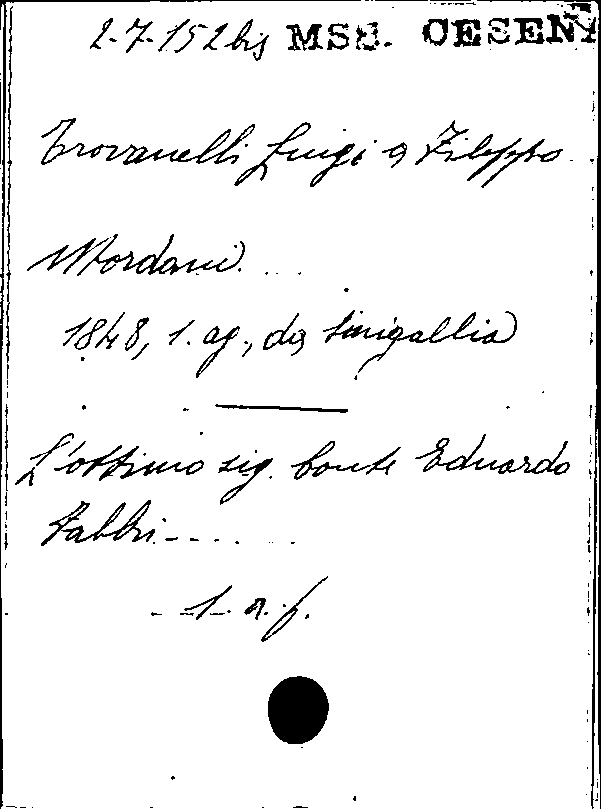 2-7-152 bis MSS. CESENA
Trovanelli Luigi a Filippo
Mordani. ...
1848, 1. ag., da Sinigallia
L'ottimo sig. Conte Eduardo
Fabbri ----...
- 1. a. f.